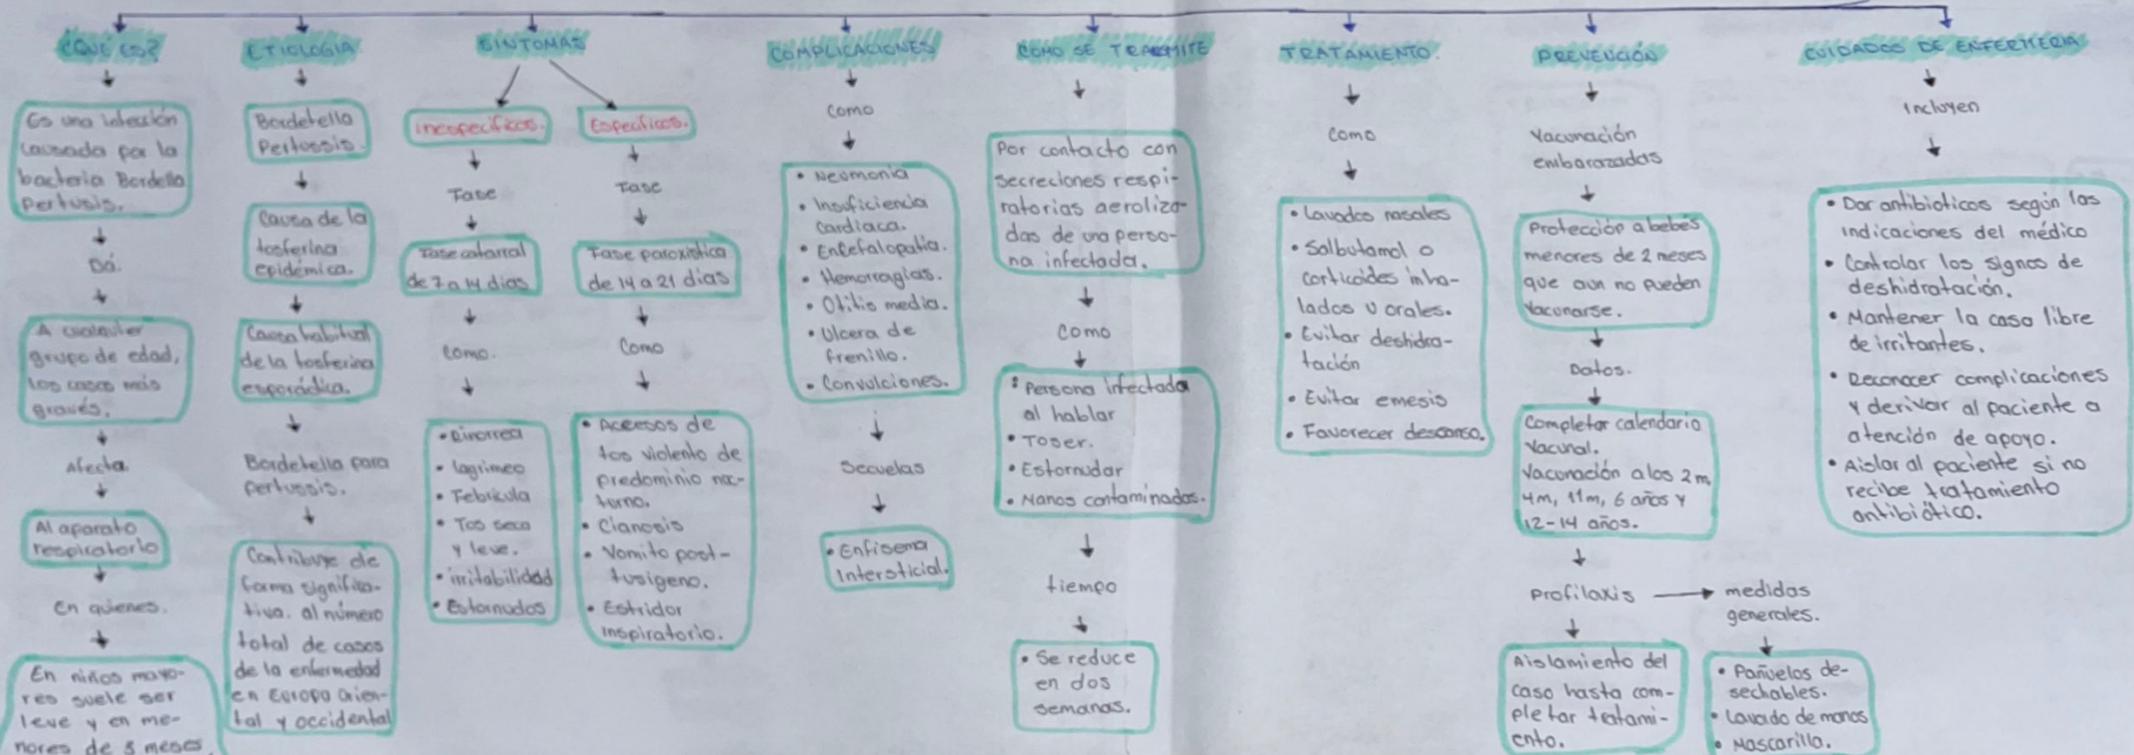 ¿QUÉ ES?
Es una infección
causada por la
bacteria Bordella
Pertusis.
Dá.
A cualquier
grupo de edad,
los casos más
graves.
Afecta.
Al aparato
respiratorio
En quienes.
En niños mayo-
res suele ser
leve y en me-
nores de 3 meses
ETIOLOGIA
Bordetella
Pertussis.
Causa de la
tosferina
epidémica.
Causa habitual
de la tosferina
esporádica.
Bordetella para
pertussis.
Contribuye de
forma significa-
tiva. al número
total de casos
de la enfermedad
en Europa orien-
tal y occidental
SINTOMAS
Inespecificos.
Fase
Fase catarral
de 7 a 14 dias
Como.
• Rinorrea
• lagrimeo
• Febricula
• Tos seca
y leve.
• irritabilidad
• Estornudos
Especificos.
Fase
Fase paroxistica
de 14 a 21 dias
Como
• Accesos de
tos violento de
predominio noc-
turno.
• Cianosis
• Vomito post-
tusigeno.
• Estridor
Inspiratorio.
COMPLICACIONES
Como
• Neumonia
• Insuficiencia
Cardiaca.
• Encefalopatia.
• Hemorragias.
• Otitis media.
• Ulcera de
frenillo.
• Convulciones.
Secuelas
• Enfisema
Intersticial.
COMO SE TRANSMITE
Por contacto con
secreciones respi-
ratorias aeroliza-
das de una perso-
na infectada.
Como
• Persona infectada
al hablar
• Toser.
• Estornudar
• Manos contaminadas.
tiempo
• Se reduce
en dos
semanas.
TRATAMIENTO.
Como
• Lavados nasales
• Salbutamol o
corticoides inha-
lados u orales.
• Evitar deshidra-
tación
• Evitar emesis
• Favorecer descanso.
PREVENCIÓN
Vacunación
embarazadas
Protección a bebés
menores de 2 meses
que aun no pueden
vacunarse.
Datos.
Completar calendario
Vacunal.
Vacunación a los 2m,
4m, 11m, 6 años y
12-14 años.
Profilaxis
medidas
generales.
Aislamiento del
caso hasta com-
pletar tratami-
ento.
• Pañuelos de-
sechables.
• Lavado de manos
• Mascarilla.
CUIDADOS DE ENFERMERIA
Incluyen
• Dar antibioticos según las
indicaciones del médico
• Controlar los signos de
deshidratación.
• Mantener la casa libre
de irritantes.
• Reconocer complicaciones
y derivar al paciente a
atención de apoyo.
• Aislar al paciente si no
recibe tratamiento
antibiótico.